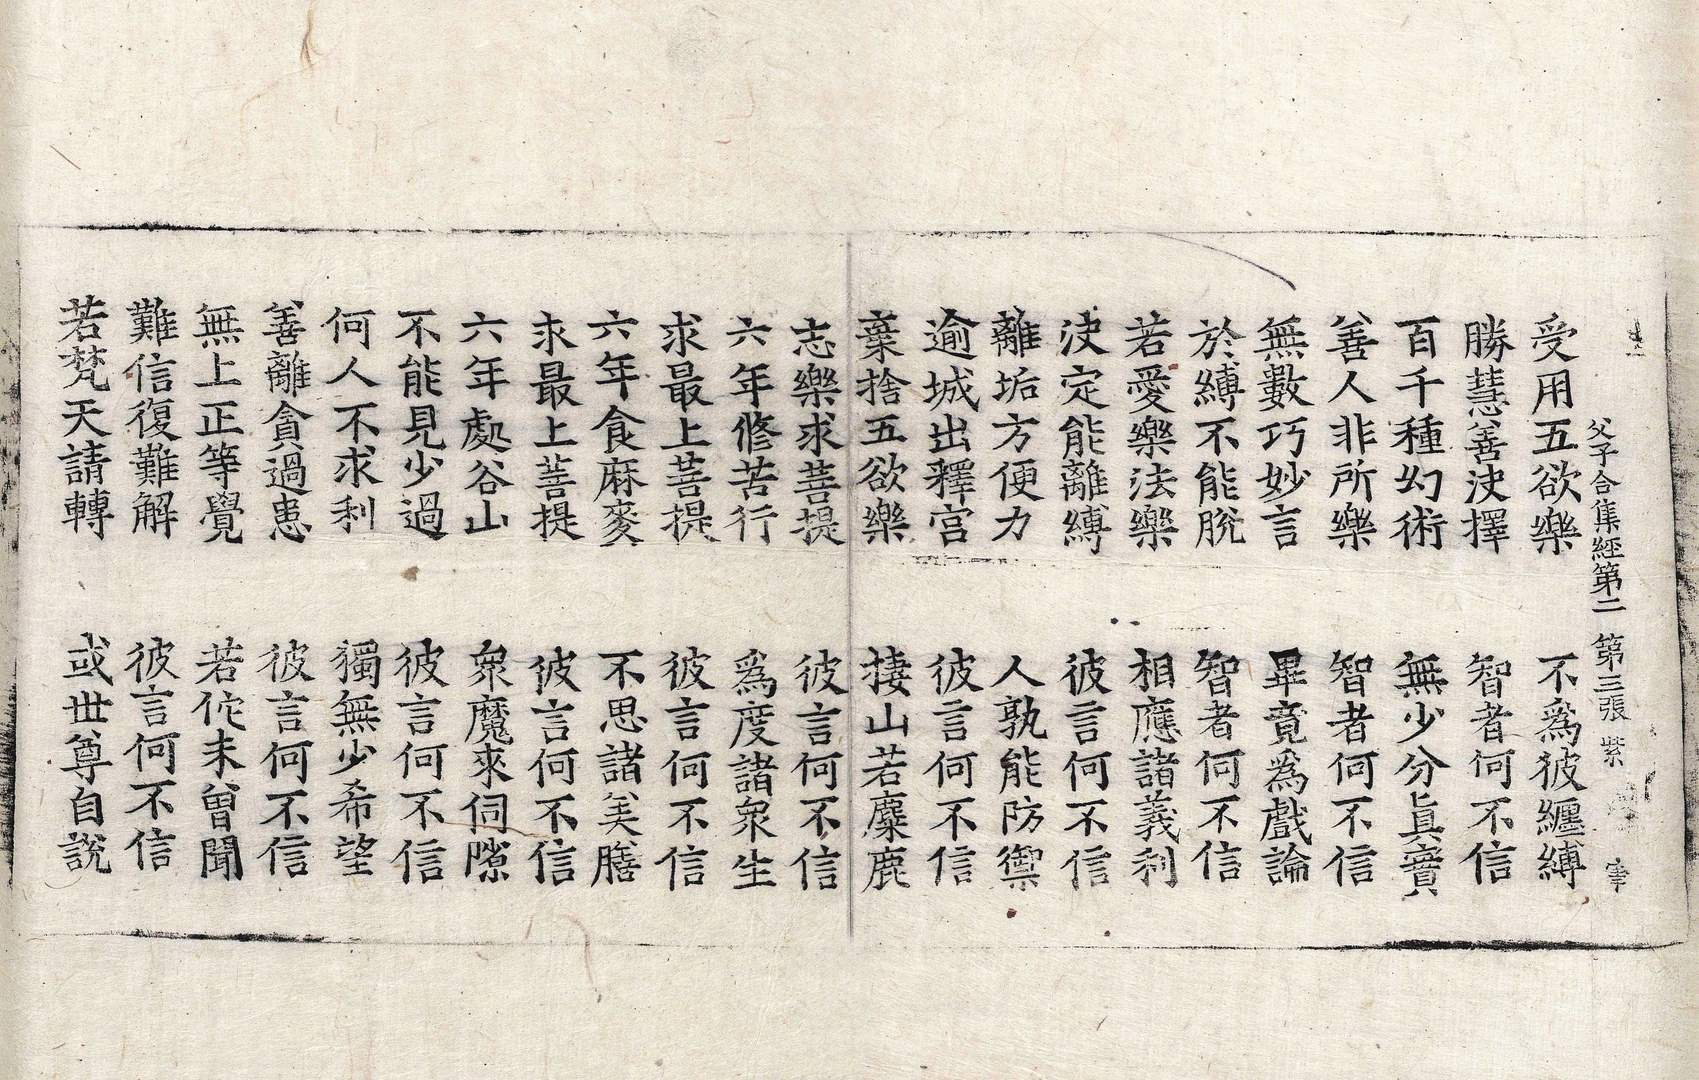 父子合集經第二 第三張 紫
受用五欲樂 不爲彼纏縛
勝慧善決擇 智者何不信
百千種幻術 無少分眞實
善人非所樂 智者何不信
無數巧妙言 畢竟爲戲論
於縛不能脫 智者何不信
若愛樂法樂 相應諸義利
決定能離縛 彼言何不信
離垢方便力 人孰能防禦
逾城出釋宮 彼言何不信
棄捨五欲樂 捿山若麋鹿
志樂求菩提 彼言何不信
六年修苦行 爲度諸衆生
求最上菩提 彼言何不信
六年食麻麥 不思諸美膳
求最上菩提 彼言何不信
六年處谷山 衆魔來伺隙
不能見少過 彼言何不信
何人不求利 獨無少希望
善離貪過患 彼言何不信
無上正等覺 若佗未曾聞
難信復難解 彼言何不信
若梵天請轉 或世尊自說